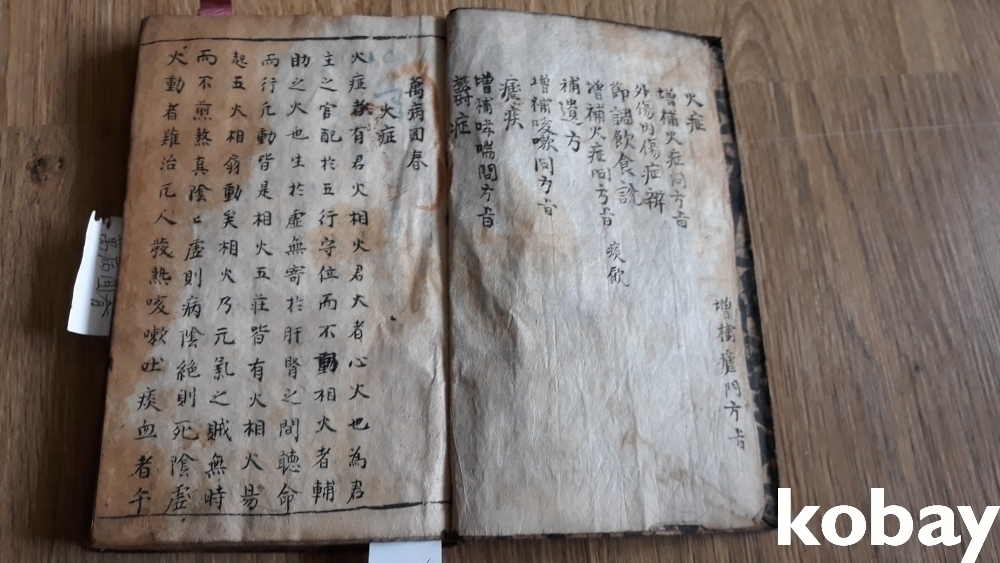 火症
增補火症問方旨
外傷內傷症辨
節調飮食說
增補火症門方旨 痰飮
補遺方
增補咳嗽問方旨
瘧疾
增補哮喘問方旨
欝症
增補瘧門方旨
萬病回春
火症
火症者有君火相火君火者心火也為君
主之官配於五行守位而不動相火者輔
助之火也生於虛無寄於肝腎之間聽命
而行凢動皆是相火五莊皆有火相火昜
起五火相扇動矣相火乃元氣之賊無時
而不煎熬真陰〻虛則病陰絕則死陰虛
火動者難治凢人發熱咳嗽吐痰血者午
萬病回春
kobay